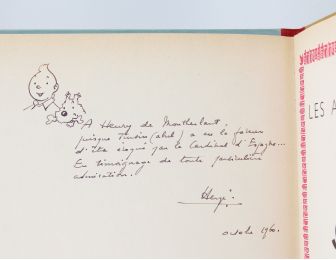 A Henry de Montherlant,
puisque Tintin (abrév) a eu la faveur
d'être évoqué par le Cardinal d'Espagne...
En témoignage de toute particulière
admiration.
Hergé.
octobre 1960.
LES A